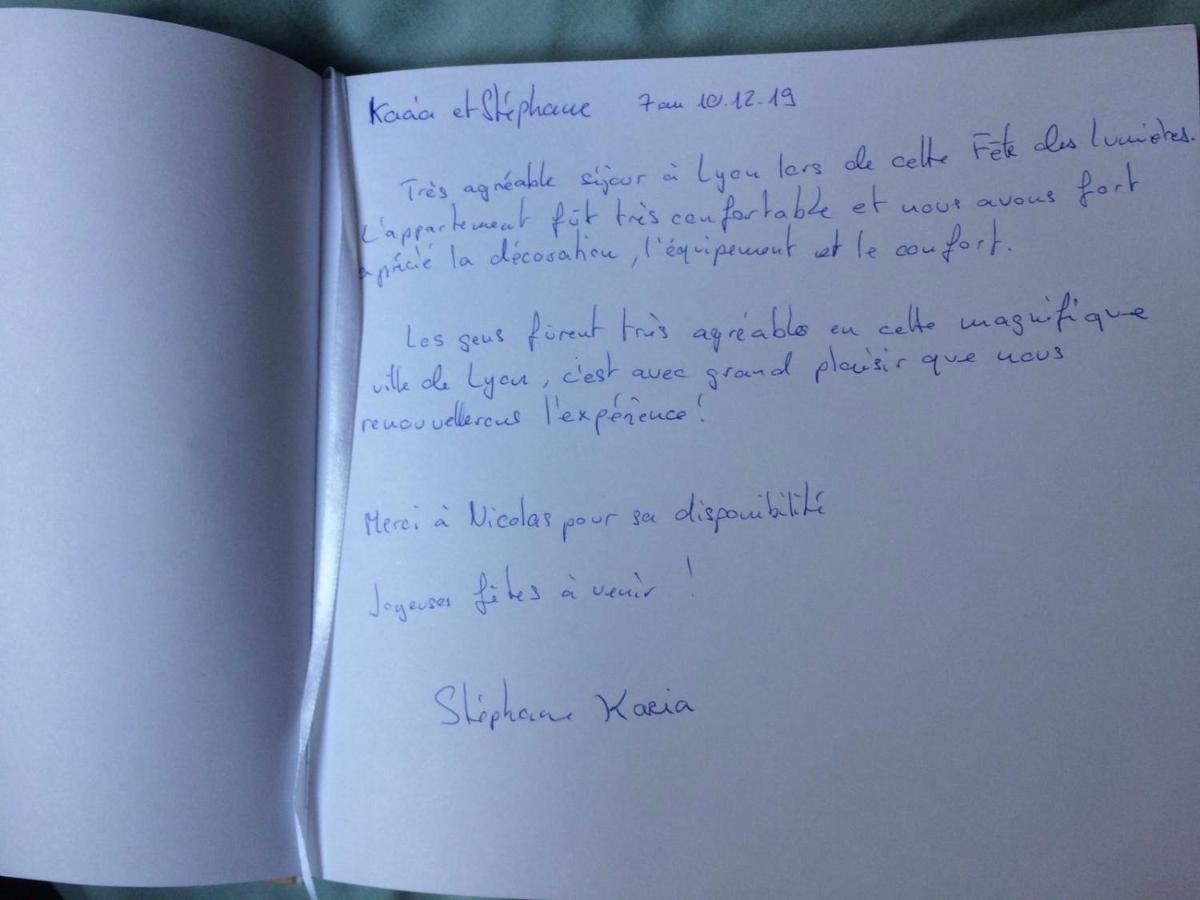 et Stéphane 7 au 10.12.19
Très agréable séjour à Lyon lors de cette Fête des lumières.
L'appartement fût très confortable et nous avons fort
apprécié la décoration, l'équipement et le confort.
Les gens fûrent très agréable en cette magnifique
ville de Lyon, c'est avec grand plaisir que nous
renouvellerons l'expérience !
Merci à Nicolas pour sa disponibilité
Joyeuses fêtes à venir !
Stéphane